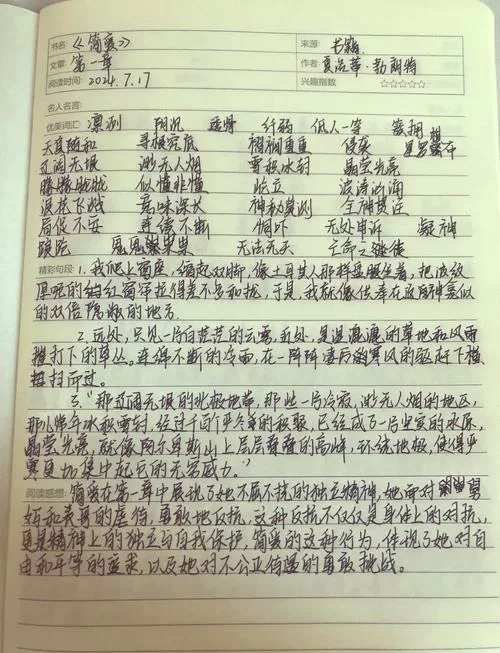 书名:《简爱》 来源: 书籍
文章: 第一章 作者: 夏洛蒂·勃朗特
阅读时间: 2024.7.17 兴趣指数 ☆☆☆☆☆
名人名言:
优美词汇: 凛冽 阴沉 透骨 纤弱 低人一等 簇拥
天真随和 寻根究底 褶裥重重 侵袭 星罗棋布
辽阔无垠 渺无人烟 雪积冰封 晶莹光亮
朦朦胧胧 似懂非懂 屹立 波涛汹涌
浪花飞溅 意味深长 神秘莫测 全神贯注
局促不安 连续不断 惆怅 无处申诉 凝神
踉跄 恩恩 无法无天 亡命之徒
精彩句段: 1. 我爬上窗座,缩起双脚,像土耳其人那样盘腿坐着,把波纹
厚呢的红窗帘拉得差不多和拢,于是我就像供奉在这神龛似
的双倍隐蔽的地方
2. 远处,只见一片白茫茫的云雾,近处,是湿漉漉的草地和风雨
打下的草丛。连绵不断的冷雨,在一阵阵凄厉的寒风的驱赶下横
扫而过。
3. "那辽阔无垠的北极地带,那些一片冷寂,渺无人烟的地区,
那儿常年冰积雪封,经过千百个严冬的积聚,已经成了一片坚实的冰原,
晶莹光亮,就像阿尔卑斯山上层层叠叠的高峰,环绕地极,使得严
寒更加集中起它的无穷威力。"
阅读感想: 简爱在第一章中展现了她不屈不挠的独立精神,她面对舅
妈和表哥的虐待,勇敢地反抗,这种反抗不仅仅是身体上的对抗,
更是精神上的独立与自我保护,简爱的这种行为,体现了她对自
由和平等的追求,以及她对不公正待遇的勇敢挑战。